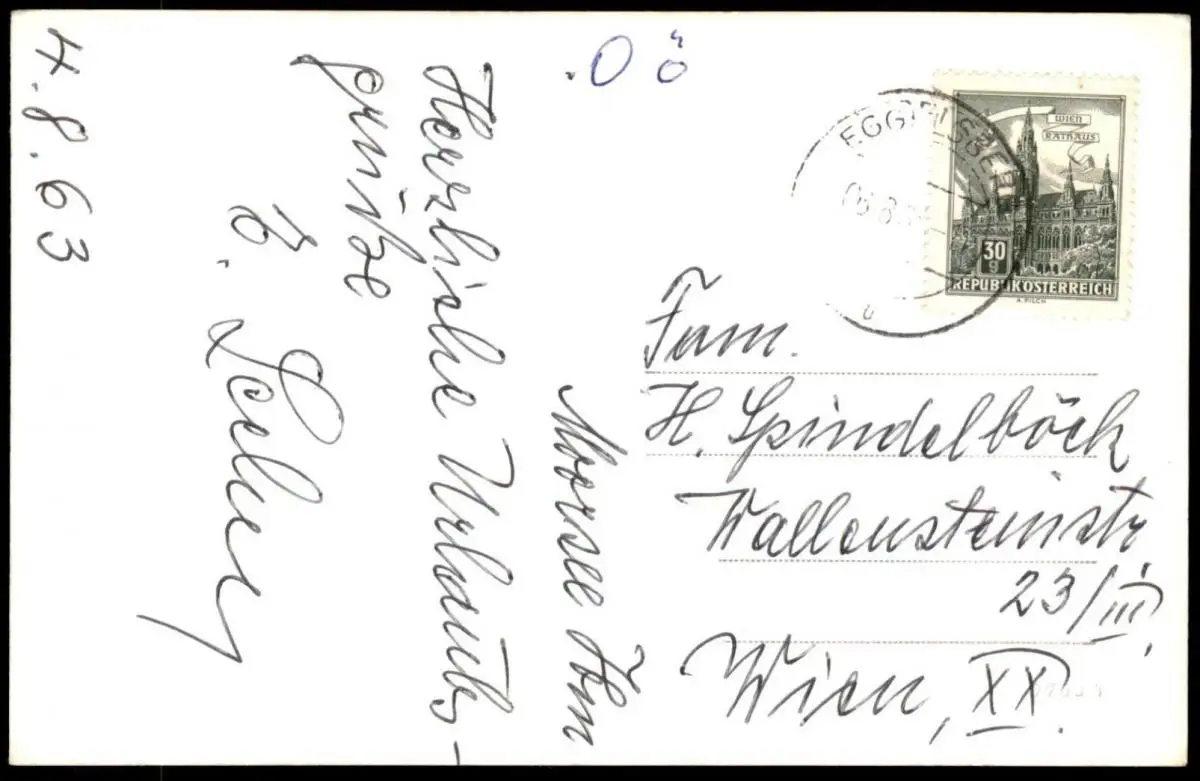 4.8.63
Herzliche Urlaubs-
grüße
OÖ
EGGELSBERG
WIEN
RATHAUS
30
g
REPUBLIK ÖSTERREICH
A. PILCH
Fam.
H. Spindelböck
Wallensteinstr
23/III.
Wien, XX